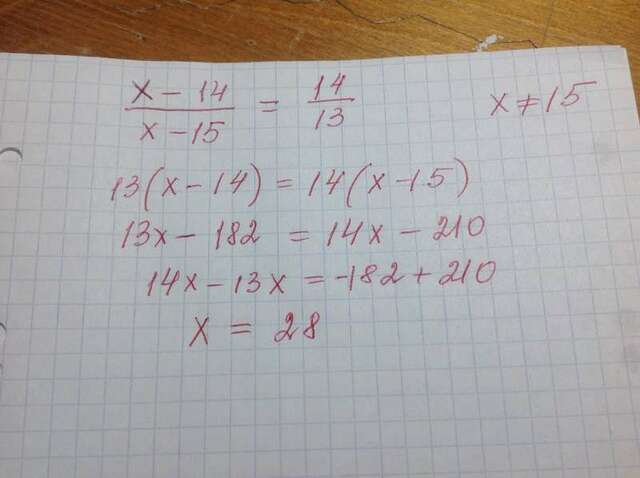 x - 14 / x - 15 = 14 / 13    x ≠ 15
13(x - 14) = 14(x - 15)
13x - 182 = 14x - 210
14x - 13x = -182 + 210
x = 28